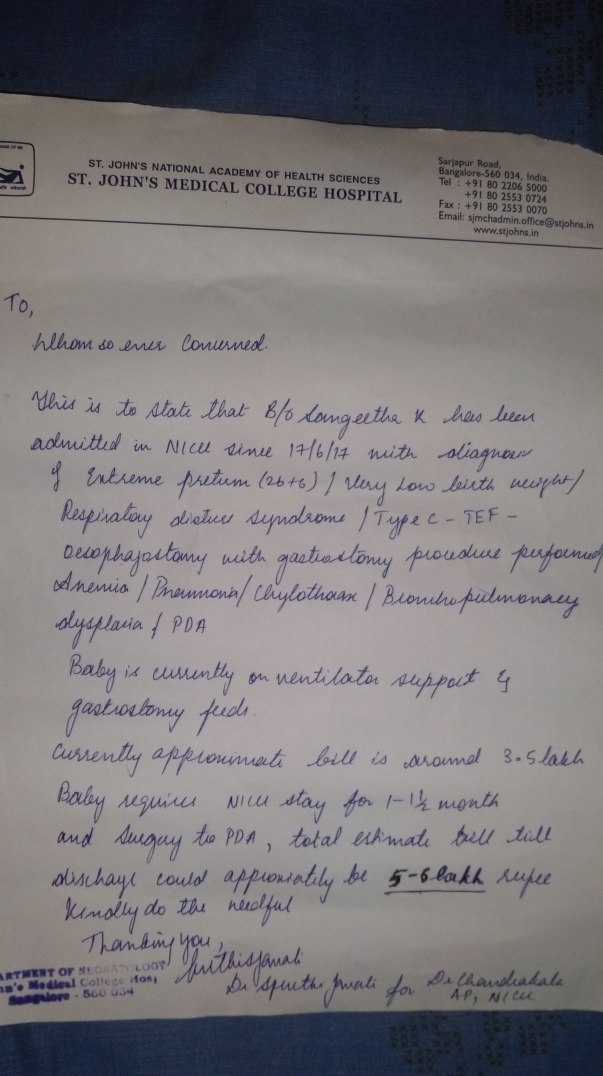 ST. JOHN'S NATIONAL ACADEMY OF HEALTH SCIENCES
ST. JOHN'S MEDICAL COLLEGE HOSPITAL
Sarjapur Road,
Bangalore-560 034, India.
Tel : +91 80 2206 5000
+91 80 2553 0724
Fax : +91 80 2553 0070
Email: sjmchadmin.office@stjohns.in
www.stjohns.in
To,
Whom so ever Concerned.
This is to state that B/o Sangeetha K has been
admitted in NICU since 17/6/17 with diagnosis
of Extreme preterm (26+6) / Very Low birth weight/
Respiratory distress syndrome / Type C - TEF -
Oesophagostomy with gastrostomy procedure performed/
Anemia / Pneumonia / Chylothorax / Bronchopulmonary
dysplasia / PDA
Baby is currently on ventilator support &
gastrostomy feeds.
Currently approximate bill is around 3.5 lakh
Baby requires NICU stay for 1-1½ month
and Surgery to PDA, total estimate bill till
discharge could be 5-6 lakh rupee
Kindly do the needful
Thanking you,
ARTMENT OF NEONATOLOGY
hn's Medical College Hos,
Bangalore - 560 034
Dr for Dr Chandrakala
AP, NICU